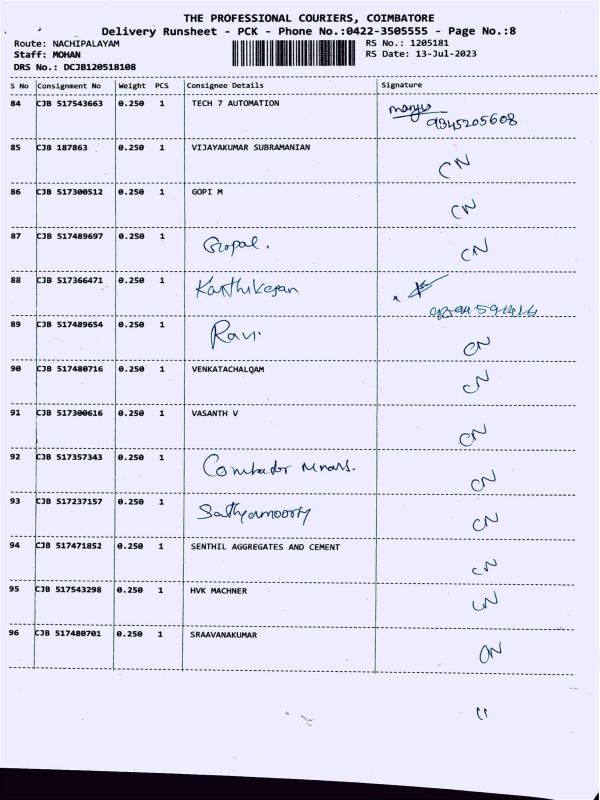 THE PROFESSIONAL COURIERS, COIMBATORE
Delivery Runsheet - PCK - Phone No.:0422-3505555 - Page No.:8
Route: NACHIPALAYAM RS No.: 1205181
Staff: MOHAN RS Date: 13-Jul-2023
DRS No.: DCJB120518108
S No Consignment No Weight PCS Consignee Details Signature
84 CJB 517543663 0.250 1 TECH 7 AUTOMATION
9345205608
85 CJB 187863 0.250 1 VIJAYAKUMAR SUBRAMANIAN CN
86 CJB 517300512 0.250 1 GOPI M CN
87 CJB 517489697 0.250 1 Gopal. CN
88 CJB 517366471 0.250 1 Karthikeyan
89 CJB 517489654 0.250 1 Ravi. CN
90 CJB 517480716 0.250 1 VENKATACHALQAM CN
91 CJB 517300616 0.250 1 VASANTH V CN
92 CJB 517357343 0.250 1 CN
93 CJB 517237157 0.250 1 Sathyamoorty CN
94 CJB 517471852 0.250 1 SENTHIL AGGREGATES AND CEMENT CN
95 CJB 517543298 0.250 1 HVK MACHNER CN
96 CJB 517480701 0.250 1 SRAAVANAKUMAR CN